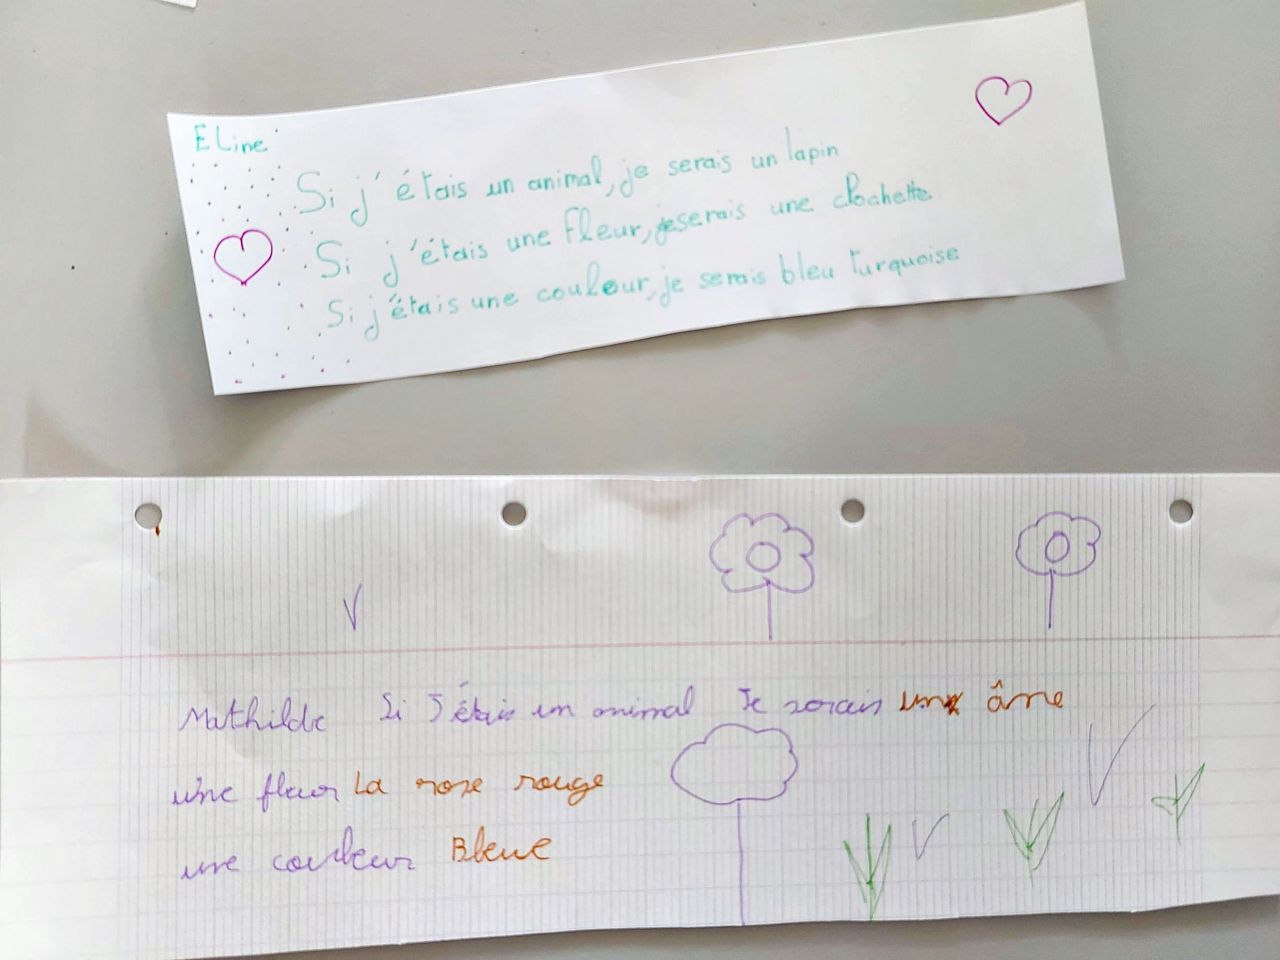 Eline
Si j'étais un animal, je serais un lapin
Si j'étais une fleur, je serais une clochette
Si j'étais une couleur, je serais bleu turquoise
Mathilde Si J'étais un animal Je serais un âme
une fleur La rose rouge
une couleur Bleue